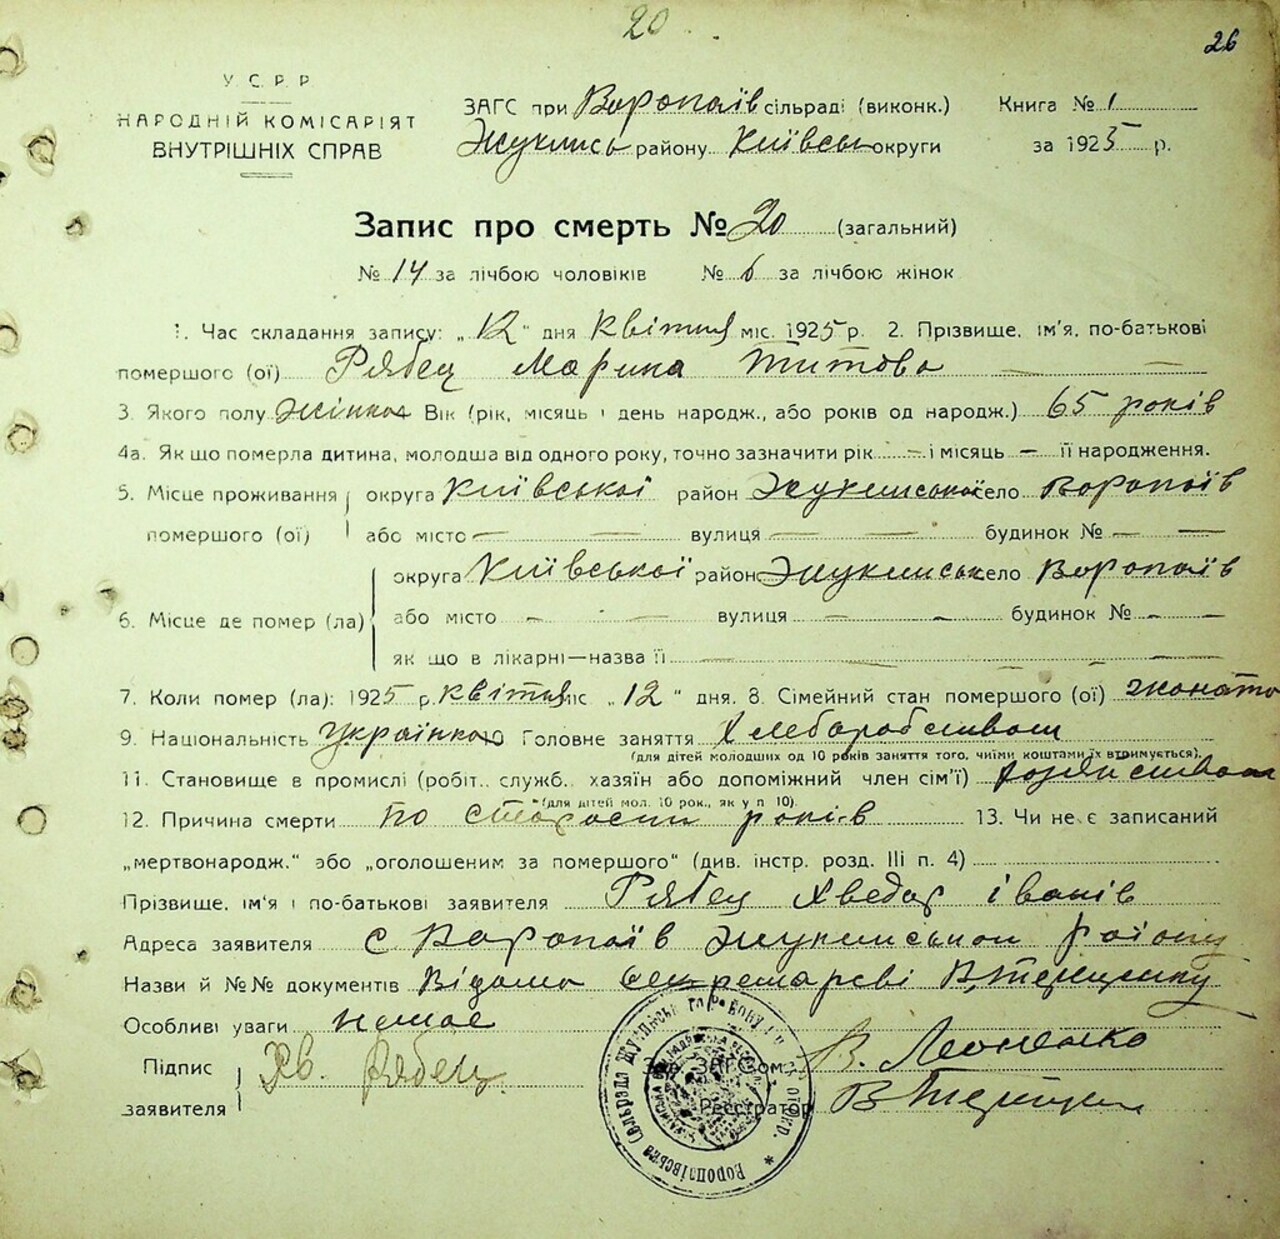 20
26
У.С.Р.Р
НАРОДНІЙ КОМІСАРІЯТ
ВНУТРІШНІХ СПРАВ
ЗАГС при Воропаїв сільраді (виконк.)
Жукинсь району Київсь округи
Книга № 1
за 1925 р.
Запис про смерть № 20 (загальний)
№ 14 за лічбою чоловіків № 6 за лічбою жінок
1. Час складання запису: „12" дня квітня міс. 1925 р. 2. Прізвище, ім'я, по-батькові
помершого (ої) Рябец Марина Титова
3. Якого полу Жінка Вік (рік, місяць і день народж., або років од народж.) 65 років
4а. Як що померла дитина, молодша від одного року, точно зазначити рік — і місяць — її народження.
5. Місце проживання помершого (ої) округа Київської район Жукинської село Воропаїв
або місто — вулиця — будинок № —
6. Місце де помер (ла) округа Київської район Жукинськ село Воропаїв
або місто — вулиця — будинок № —
як що в лікарні—назва її —
7. Коли помер (ла): 1925 р. квітня міс „12" дня. 8. Сімейний стан помершого (ої) жоната
9. Національність Українка Головне заняття Хлеборобством
(для дітей молодших од 10 років заняття того, чиїми коштами їх втримується).
11. Становище в промислі (робіт., служб. хазяїн або допоміжний член сім'ї)
(для дітей мол. 10 рок., як у п 10).
12. Причина смерти по старости років 13. Чи не є записаний
„мертвонародж." або „оголошеним за помершого" (див. інстр. розд. III п. 4)
Прізвище, ім'я і по-батькові заявителя Рябец Хведор іванів
Адреса заявителя с Воропаїв Жукинськой району
Назви й №№ документів Відомо секретареві В. Терещенку
Особливі уваги немає
Підпис заявителя Хв. Рябец
Зав. ЗАГС'ом В.
Реєстратор В